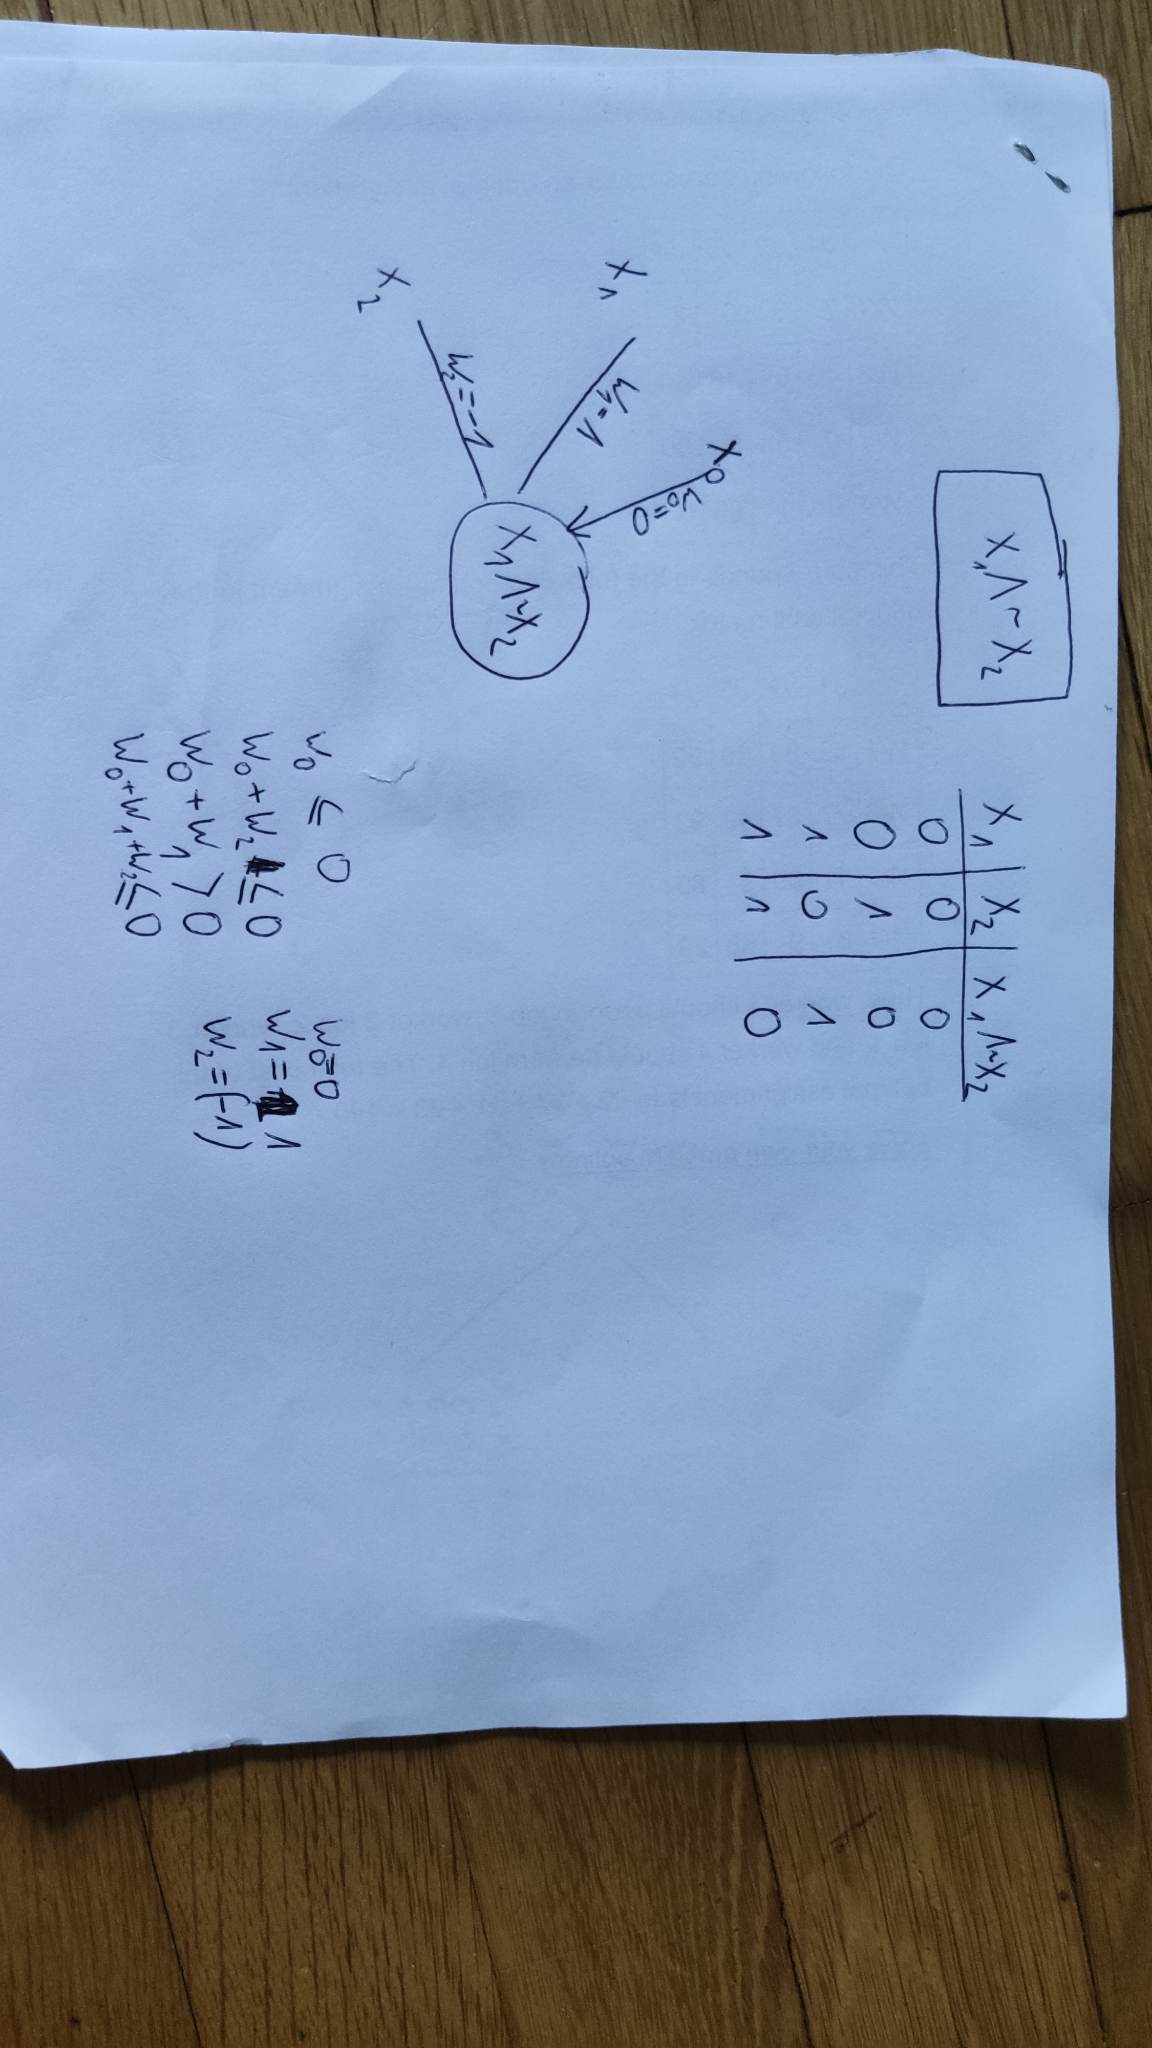 X₁ Λ ~ X₂
X₁ | X₂ | X₁ Λ~X₂
0 | 0 | 0
0 | 1 | 0
1 | 0 | 1
1 | 1 | 0
X₀
W₀=0
X₁
W₁=1
X₁ Λ~X₂
W₂=-1
X₂
W₀ ≤ 0
W₀+W₂ ≤ 0
W₀+W₁ > 0
W₀+W₁+W₂ ≤ 0
W₀=0
W1= 1
W₂=(-1)